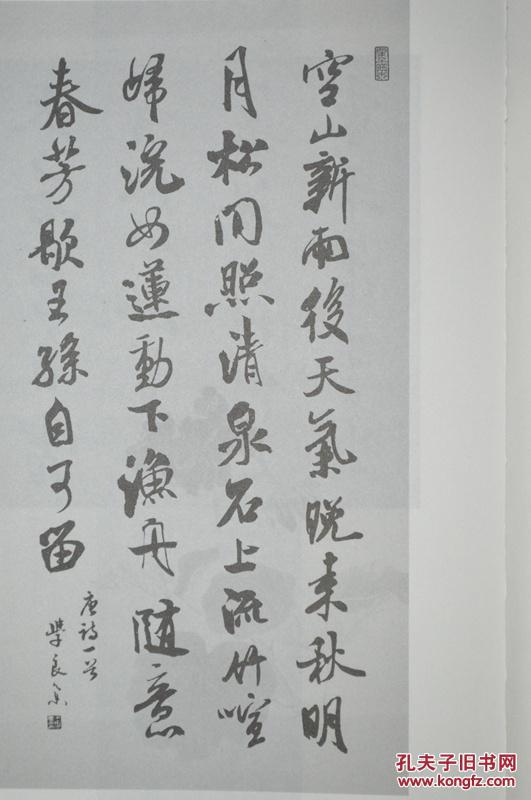 空山新雨後天氣晚来秋明
月松间照清泉石上流竹喧
婦浣女蓮動下漁舟随意
春芳歇王孫自可留
唐詩一首
孔夫子旧书网
www.kongfz.com